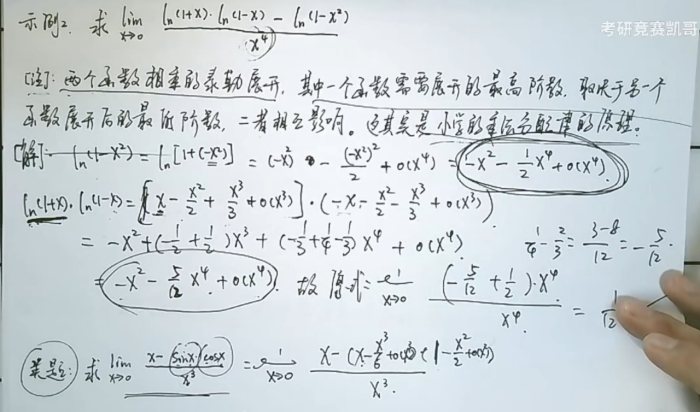 考研竞赛凯哥
示例2. 求 lim x→0 (ln(1+x)·ln(1-x) - ln(1-x²)) / x⁴
[注]: 两个函数相乘的泰勒展开, 其中一个函数需要展开的最高阶数, 取决于另一个
函数展开后的最低阶数, 二者相互影响。这其实是小学的乘法分配律的原理。
[解]: ln(1-x²) = ln[1+(-x²)] = (-x²) - (-x²)²/2 + o(x⁴) = -x² - 1/2 x⁴ + o(x⁴).
ln(1+x)·ln(1-x) = [x - x²/2 + x³/3 + o(x³)]·(-x - x²/2 - x³/3 + o(x³))
= -x² + (-1/2 + 1/2)x³ + (-1/3 + 1/4 - 1/3)x⁴ + o(x⁴). 1/4 - 2/3 = (3-8)/12 = -5/12.
= -x² - 5/12 x⁴ + o(x⁴). 故原式 = lim x→0 (-5/12 + 1/2)·x⁴ / x⁴. = 1/12
类题: 求 lim x→0 (x - sinx cosx) / x³ = lim x→0 (x - (x - x³/6 + o(x³))(1 - x²/2 + o(x²))) / x³.